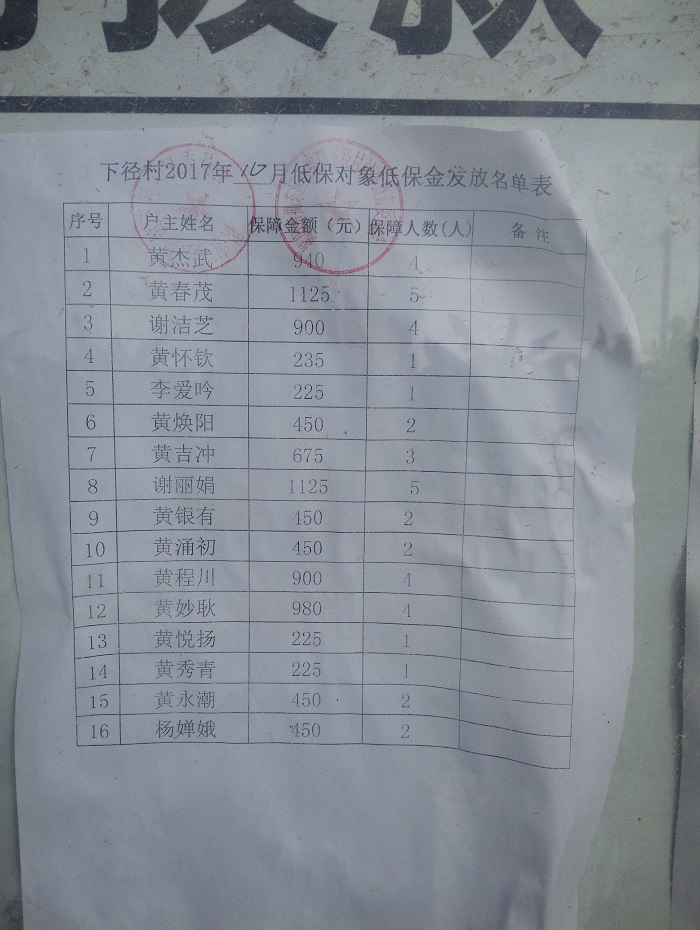 拨款
下径村2017年10月低保对象低保金发放名单表
序号 户主姓名 保障金额（元） 保障人数(人) 备注
1 黄杰武 940 4
2 黄春茂 1125 5
3 谢洁芝 900 4
4 黄怀钦 235 1
5 李爱吟 225 1
6 黄焕阳 450 2
7 黄吉冲 675 3
8 谢丽娟 1125 5
9 黄银有 450 2
10 黄涌初 450 2
11 黄程川 900 4
12 黄妙耿 980 4
13 黄悦扬 225 1
14 黄秀青 225 1
15 黄永潮 450 2
16 杨婵娥 450 2